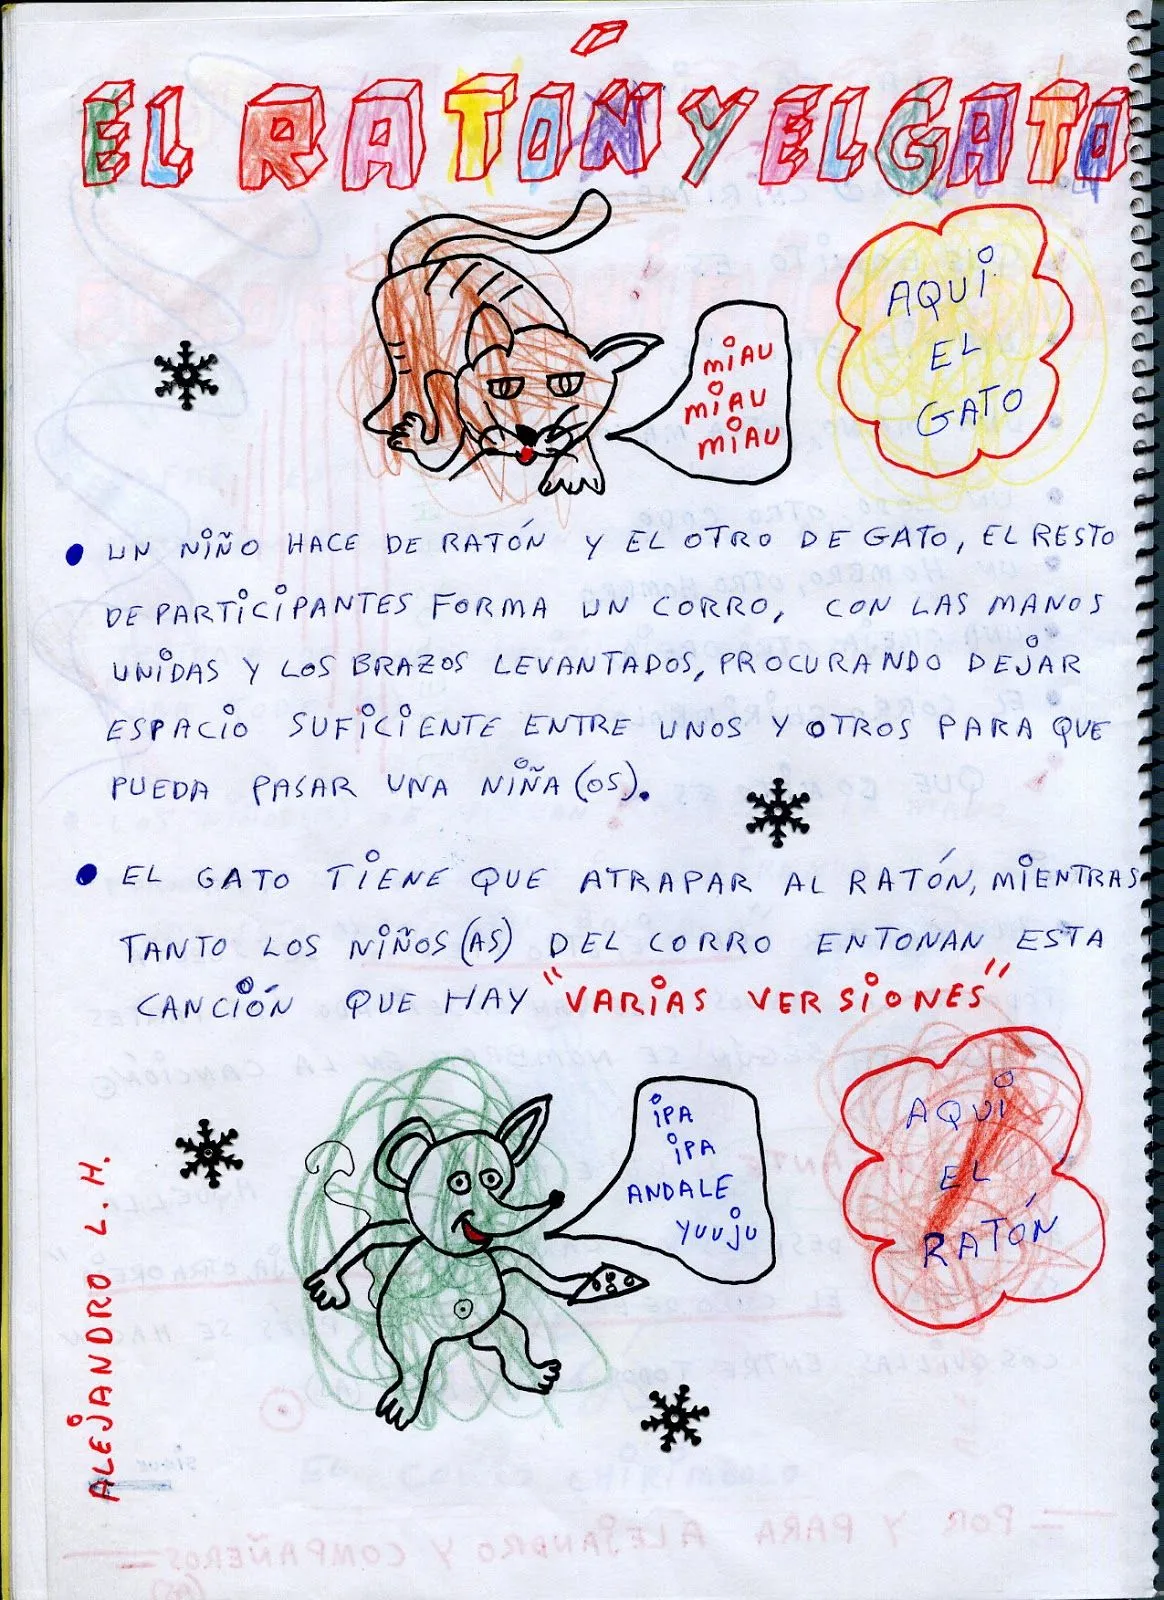 EL RATÓN Y EL GATO
AQUI
EL
GATO
MIAU
MIAU
MIAU
UN NIÑO HACE DE RATÓN Y EL OTRO DE GATO, EL RESTO
DE PARTICIPANTES FORMA UN CORRO, CON LAS MANOS
UNIDAS Y LOS BRAZOS LEVANTADOS, PROCURANDO DEJAR
ESPACIO SUFICIENTE ENTRE UNOS Y OTROS PARA QUE
PUEDA PASAR UNA NIÑA(OS).
EL GATO TIENE QUE ATRAPAR AL RATÓN, MIENTRAS
TANTO LOS NIÑOS(AS) DEL CORRO ENTONAN ESTA
CANCIÓN QUE HAY "VARIAS VERSIONES"
IPA
IPA
ANDALE
YUUJU
AQUI
EL
RATÓN
ALEJANDRO L. H.